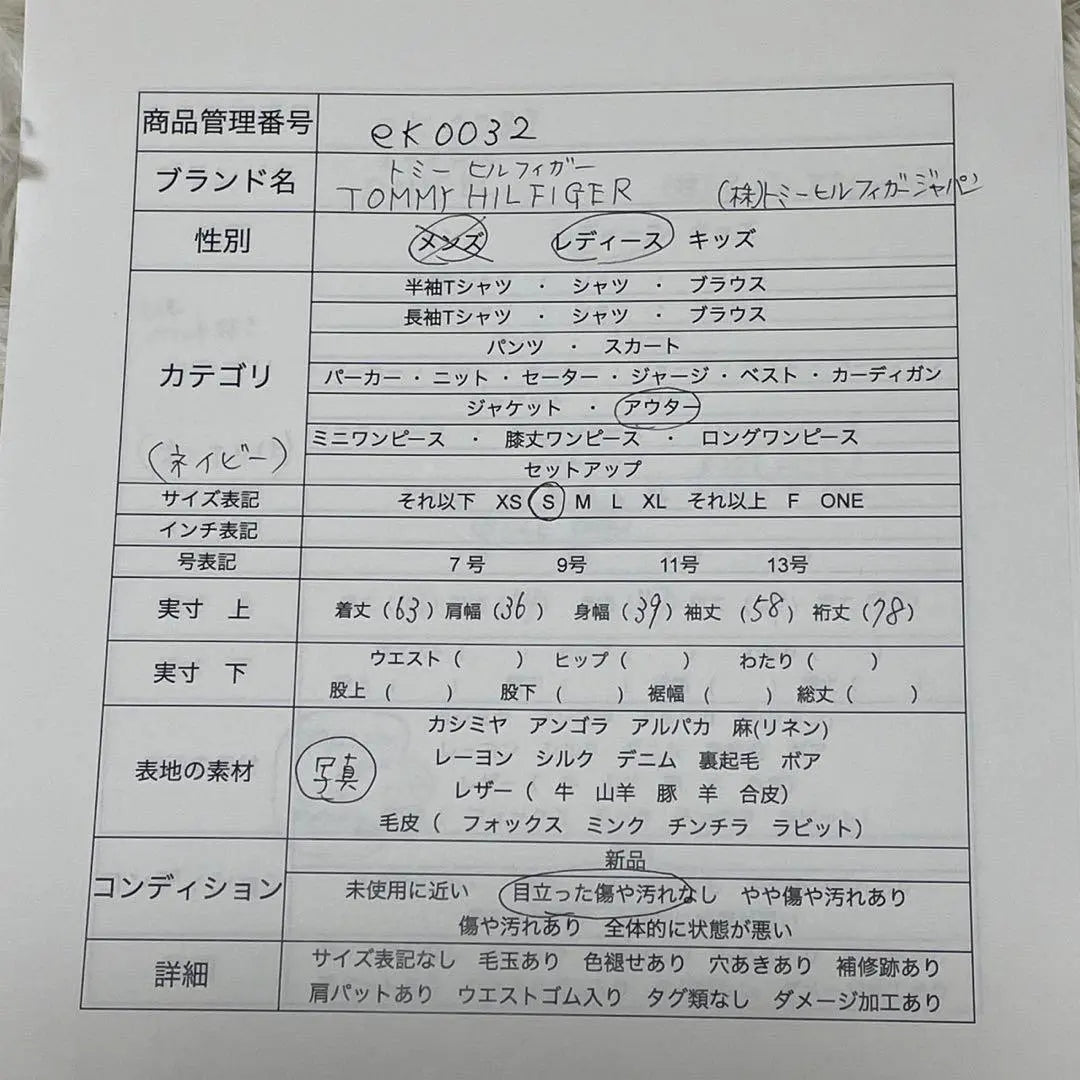 商品管理番号 ek0032
トミー ヒルフィガー
ブランド名 TOMMY HILFIGER (株)トミーヒルフィガージャパン
性別 メンズ レディース キッズ
半袖Tシャツ ・ シャツ ・ ブラウス
長袖Tシャツ ・ シャツ ・ ブラウス
パンツ ・ スカート
カテゴリ パーカー ・ ニット ・ セーター ・ ジャージ ・ ベスト ・ カーディガン
ジャケット ・ アウター
ミニワンピース ・ 膝丈ワンピース ・ ロングワンピース
(ネイビー)
セットアップ
サイズ表記 それ以下 XS S M L XL それ以上 F ONE
インチ表記
号表記 7号 9号 11号 13号
実寸 上 着丈(63) 肩幅(36) 身幅(39) 袖丈(58) 裄丈(78)
実寸 下 ウエスト( ) ヒップ( ) わたり( )
股上( ) 股下( ) 裾幅( ) 総丈( )
カシミヤ アンゴラ アルパカ 麻(リネン)
表地の素材 写真 レーヨン シルク デニム 裏起毛 ボア
レザー( 牛 山羊 豚 羊 合皮)
毛皮( フォックス ミンク チンチラ ラビット)
新品
コンディション 未使用に近い 目立った傷や汚れなし やや傷や汚れあり
傷や汚れあり 全体的に状態が悪い
詳細 サイズ表記なし 毛玉あり 色褪せあり 穴あきあり 補修跡あり
肩パットあり ウエストゴム入り タグ類なし ダメージ加工あり